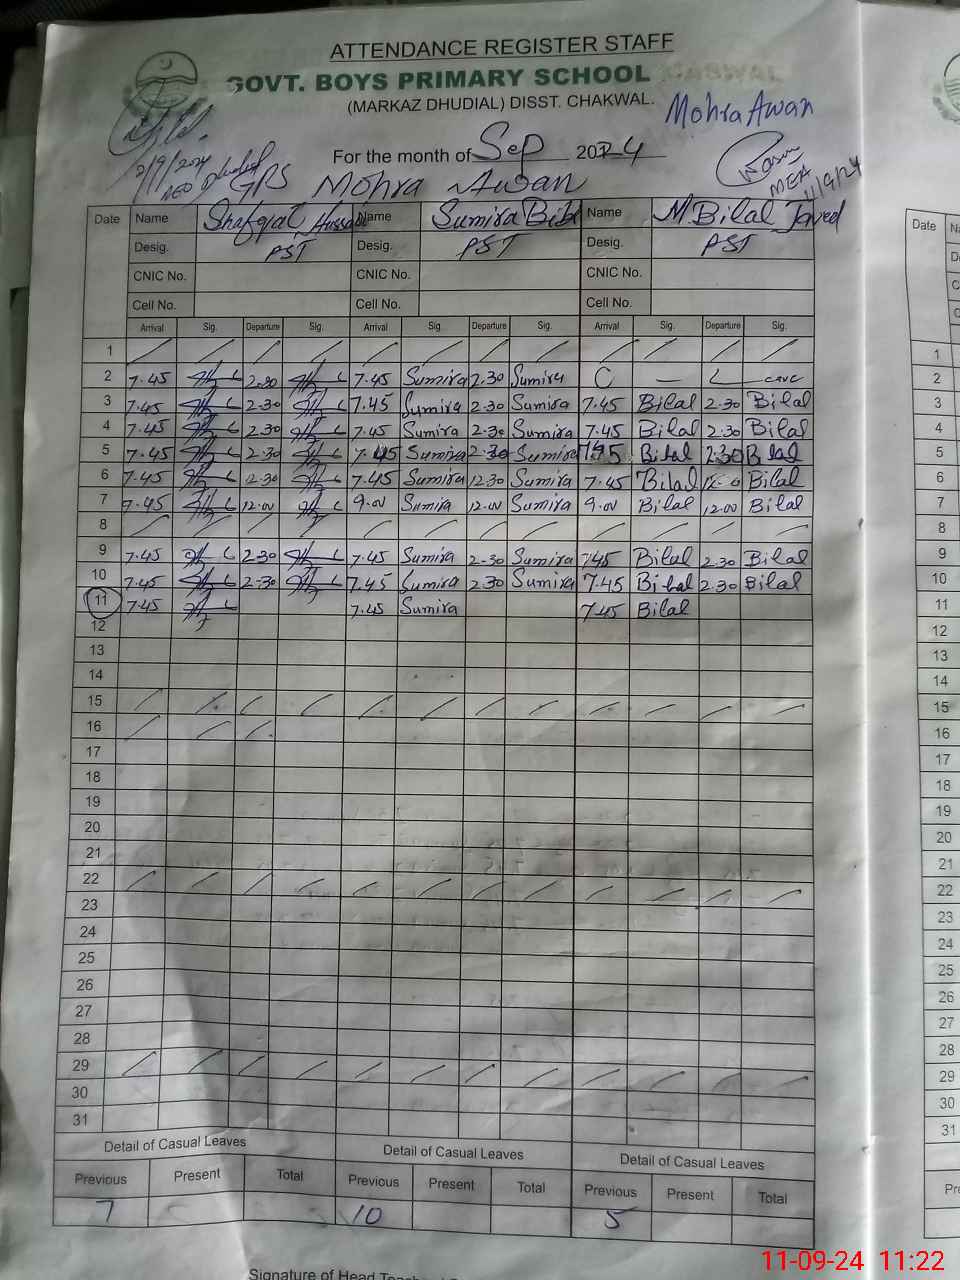 ATTENDANCE REGISTER STAFF
GOVT. BOYS PRIMARY SCHOOL
(MARKAZ DHUDIAL) DISST. CHAKWAL.
Mohra Awan
For the month of Sep 2024
2/9/2024
AEO Dhudial
MEA
11/9/24
GPS Mohra Awan
Date Name Shafqat Hussain Name Sumira Bibi Name M Bilal Javed
Desig. PST Desig. PST Desig. PST
CNIC No. CNIC No. CNIC No.
Cell No. Cell No. Cell No.
Arrival Sig. Departure Sig. Arrival Sig. Departure Sig. Arrival Sig. Departure Sig.
1
2 7.45 2.30 7.45 Sumira 2.30 Sumira C — L eave
3 7.45 2.30 7.45 Sumira 2.30 Sumira 7.45 Bilal 2.30 Bilal
4 7.45 2.30 7.45 Sumira 2.30 Sumira 7.45 Bilal 2.30 Bilal
5 7.45 2.30 7.45 Sumira 2.30 Sumira 7.45 Bilal 2.30 Bilal
6 7.45 12.30 7.45 Sumira 12.30 Sumira 7.45 Bilal Bilal
7 7.45 12.00 9.00 Sumira 12.00 Sumira 9.00 Bilal 12.00 Bilal
8
9 7.45 2.30 7.45 Sumira 2.30 Sumira 7.45 Bilal 2.30 Bilal
10 7.45 2.30 7.45 Sumira 2.30 Sumira 7.45 Bilal 2.30 Bilal
11 7.45 7.45 Sumira 7.45 Bilal
12
13
14
15
16
17
18
19
20
21
22
23
24
25
26
27
28
29
30
31
Detail of Casual Leaves Detail of Casual Leaves Detail of Casual Leaves
Previous Present Total Previous Present Total Previous Present Total
7 10 5
Date
1
2
3
4
5
6
7
8
9
10
11
12
13
14
15
16
17
18
19
20
21
22
23
24
25
26
27
28
29
30
31
11-09-24 11:22